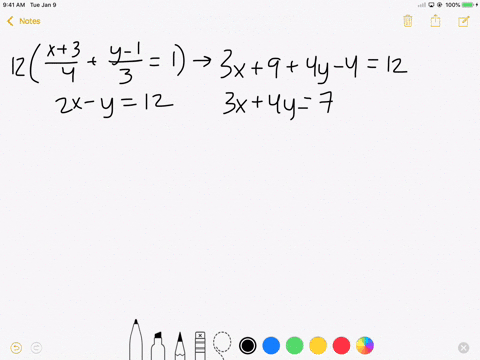 9:41 AM Tue Jan 9
100%
Notes
12(x+3/4 + y-1/3 = 1) → 3x+9+4y-4=12
2x-y=12 3x+4y=7